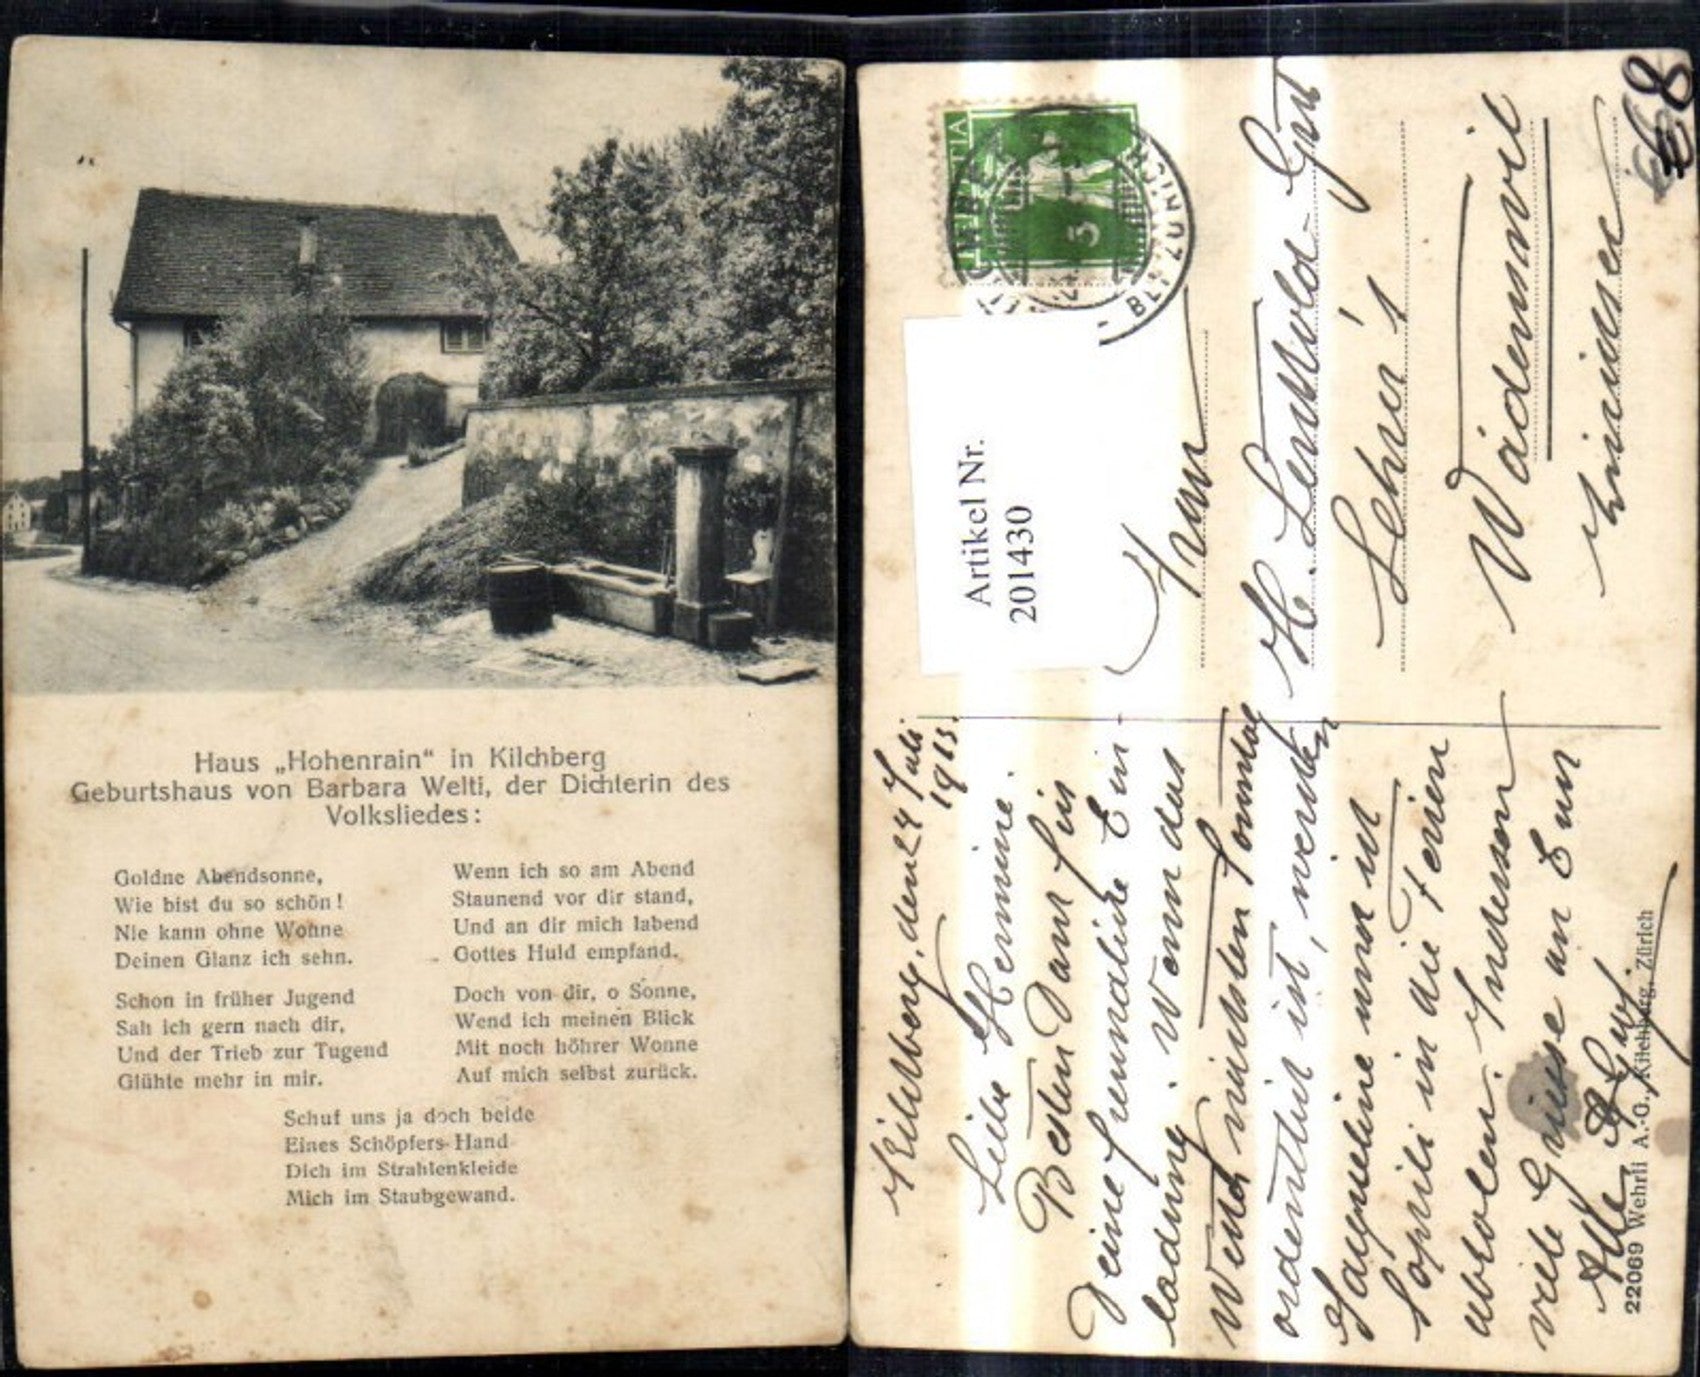 Haus „Hohenrain“ in Kilchberg
Geburtshaus von Barbara Welti, der Dichterin des
Volksliedes:
Goldne Abendsonne,
Wie bist du so schön!
Nie kann ohne Wonne
Deinen Glanz ich sehn.
Schon in früher Jugend
Sah ich gern nach dir,
Und der Trieb zur Tugend
Glühte mehr in mir.
Wenn ich so am Abend
Staunend vor dir stand,
Und an dir mich labend
Gottes Huld empfand.
Doch von dir, o Sonne,
Wend ich meinen Blick
Mit noch höhrer Wonne
Auf mich selbst zurück.
Schuf uns ja doch beide
Eines Schöpfers Hand
Dich im Strahlenkleide
Mich im Staubgewand.
HELVETIA
5
Artikel Nr.
201430
Kilchberg, den 24 Juli
1913.
Liebe Hermine.
Besten Dank für
Deine freundliche Ein-
ladung. Wenn das
Wetter nächsten Sonntag
ordentlich ist, werden
Jaqueline und ich
Sophili in die Ferien
abholen. Indessen
viele Grüsse an Euch
Alle
Frau
H.
Gut
Lehn's
Wädenswil
Zürichsee
68
22069 Wehrli A.-G., Kilchberg, Zürich